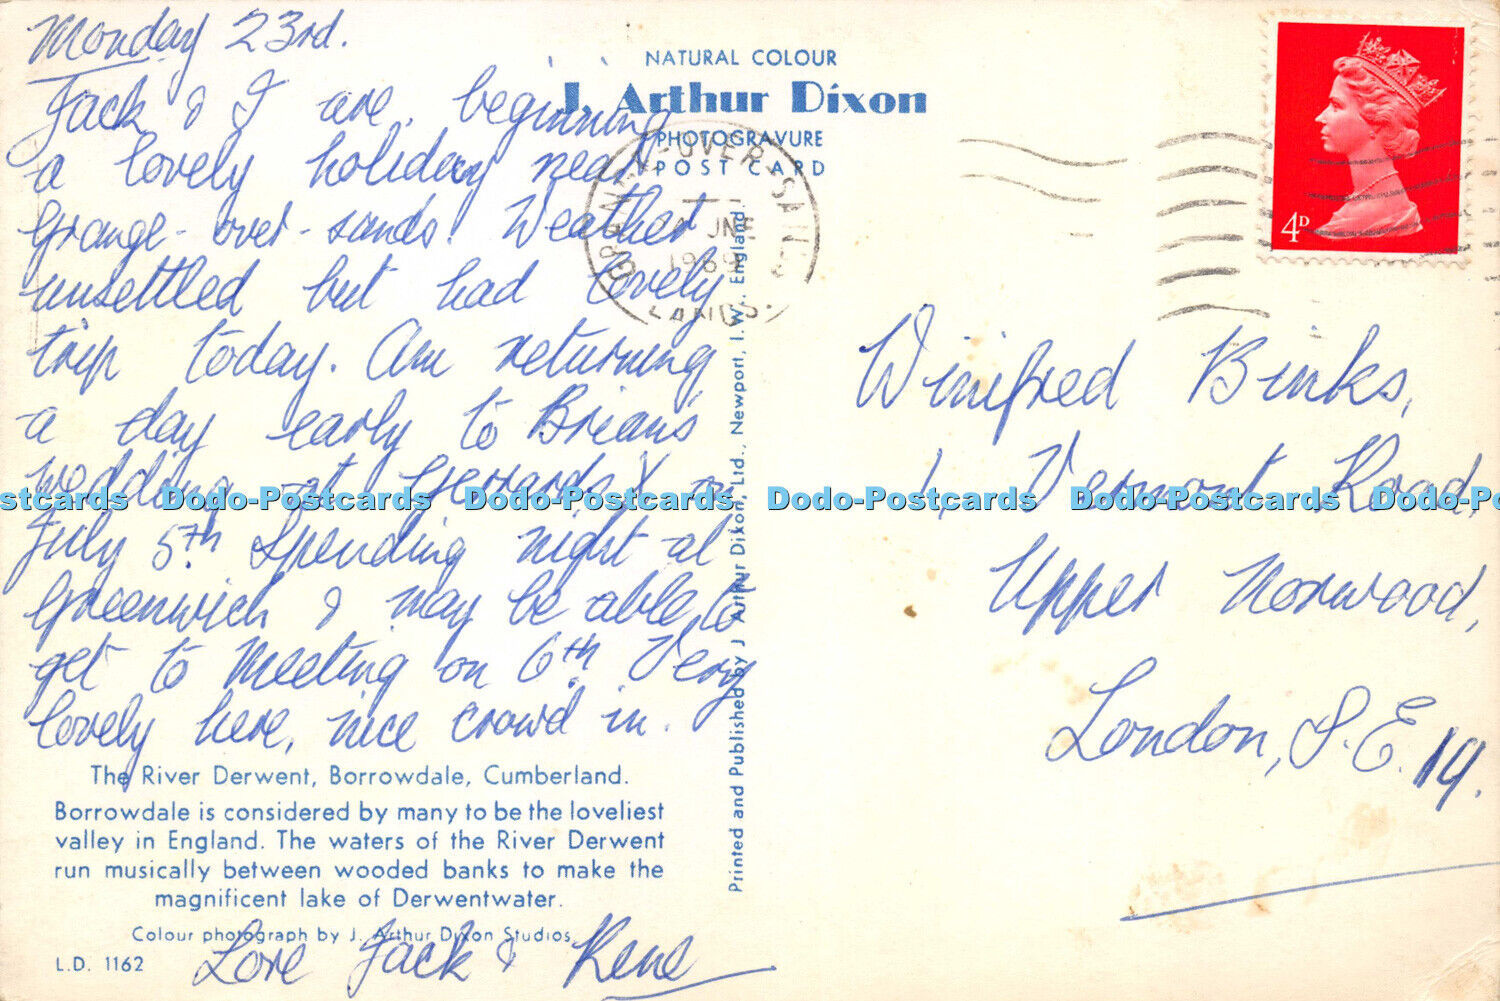 Monday 23rd.
Jack & I are beginning
a lovely holiday near
Grange-over-sands. Weather
unsettled but had lovely
trip today. Am returning
a day early to Brian's
wedding at Gerrards X on
July 5th Spending night at
Greenwich & may be able to
get to Meeting on 6th. Very
lovely here, nice crowd in.
The River Derwent, Borrowdale, Cumberland.
Borrowdale is considered by many to be the loveliest
valley in England. The waters of the River Derwent
run musically between wooded banks to make the
magnificent lake of Derwentwater.
Colour photograph by J. Arthur Dixon Studios.
L.D. 1162
Love Jack & Rene
NATURAL COLOUR
J. Arthur Dixon
PHOTOGRAVURE
POST CARD
Printed and Published by J. Arthur Dixon, Ltd., Newport, I.W. England.
GRANGE-OVER-SANDS
JNE
1969
LANCS.
4D
Winifred Binks,
1, Vermont Road,
Upper Norwood,
London, S.E.19.
Postcards Dodo-Postcards Dodo-Postcards Dodo-Postcards Dodo-Postcards Dodo-Post